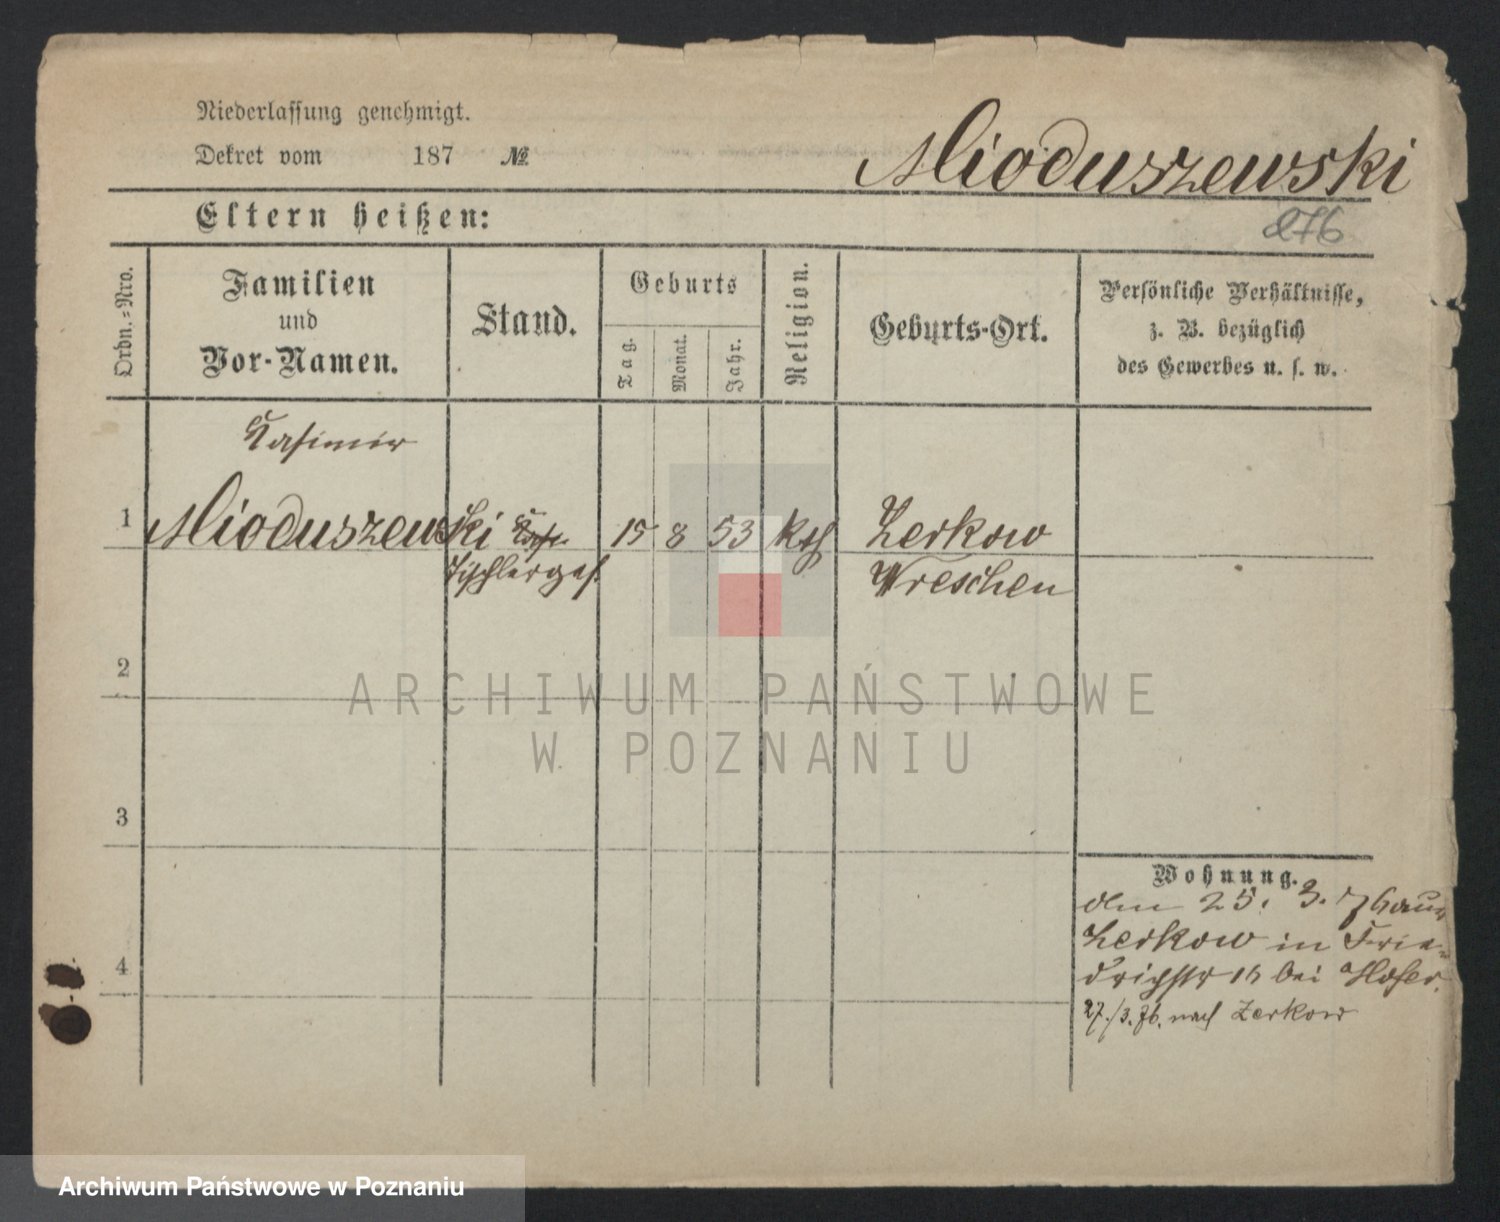 Niederlassung genehmigt.
Dekret vom 187 №
Mioduszewski
Eltern heißen:
276
Ordn.=Nro.
Familien
und
Vor-Namen.
Stand.
Geburts
Tag.
Monat.
Jahr.
Religion.
Geburts-Ort.
Persönliche Verhältnisse,
z. B. bezüglich
des Gewerbes u. s. w.
Kasimir
1 Mioduszewski 15 8 53 kth Zerkow
Tischlerges. Wreschen
2
ARCHIWUM PAŃSTWOWE
W POZNANIU
3
Wohnung.
den 25. 3. 76 aus
Zerkow in Frie-
drichstr 16 bei Hofer.
4
27./3. 76. nach Zerkow
Archiwum Państwowe w Poznaniu